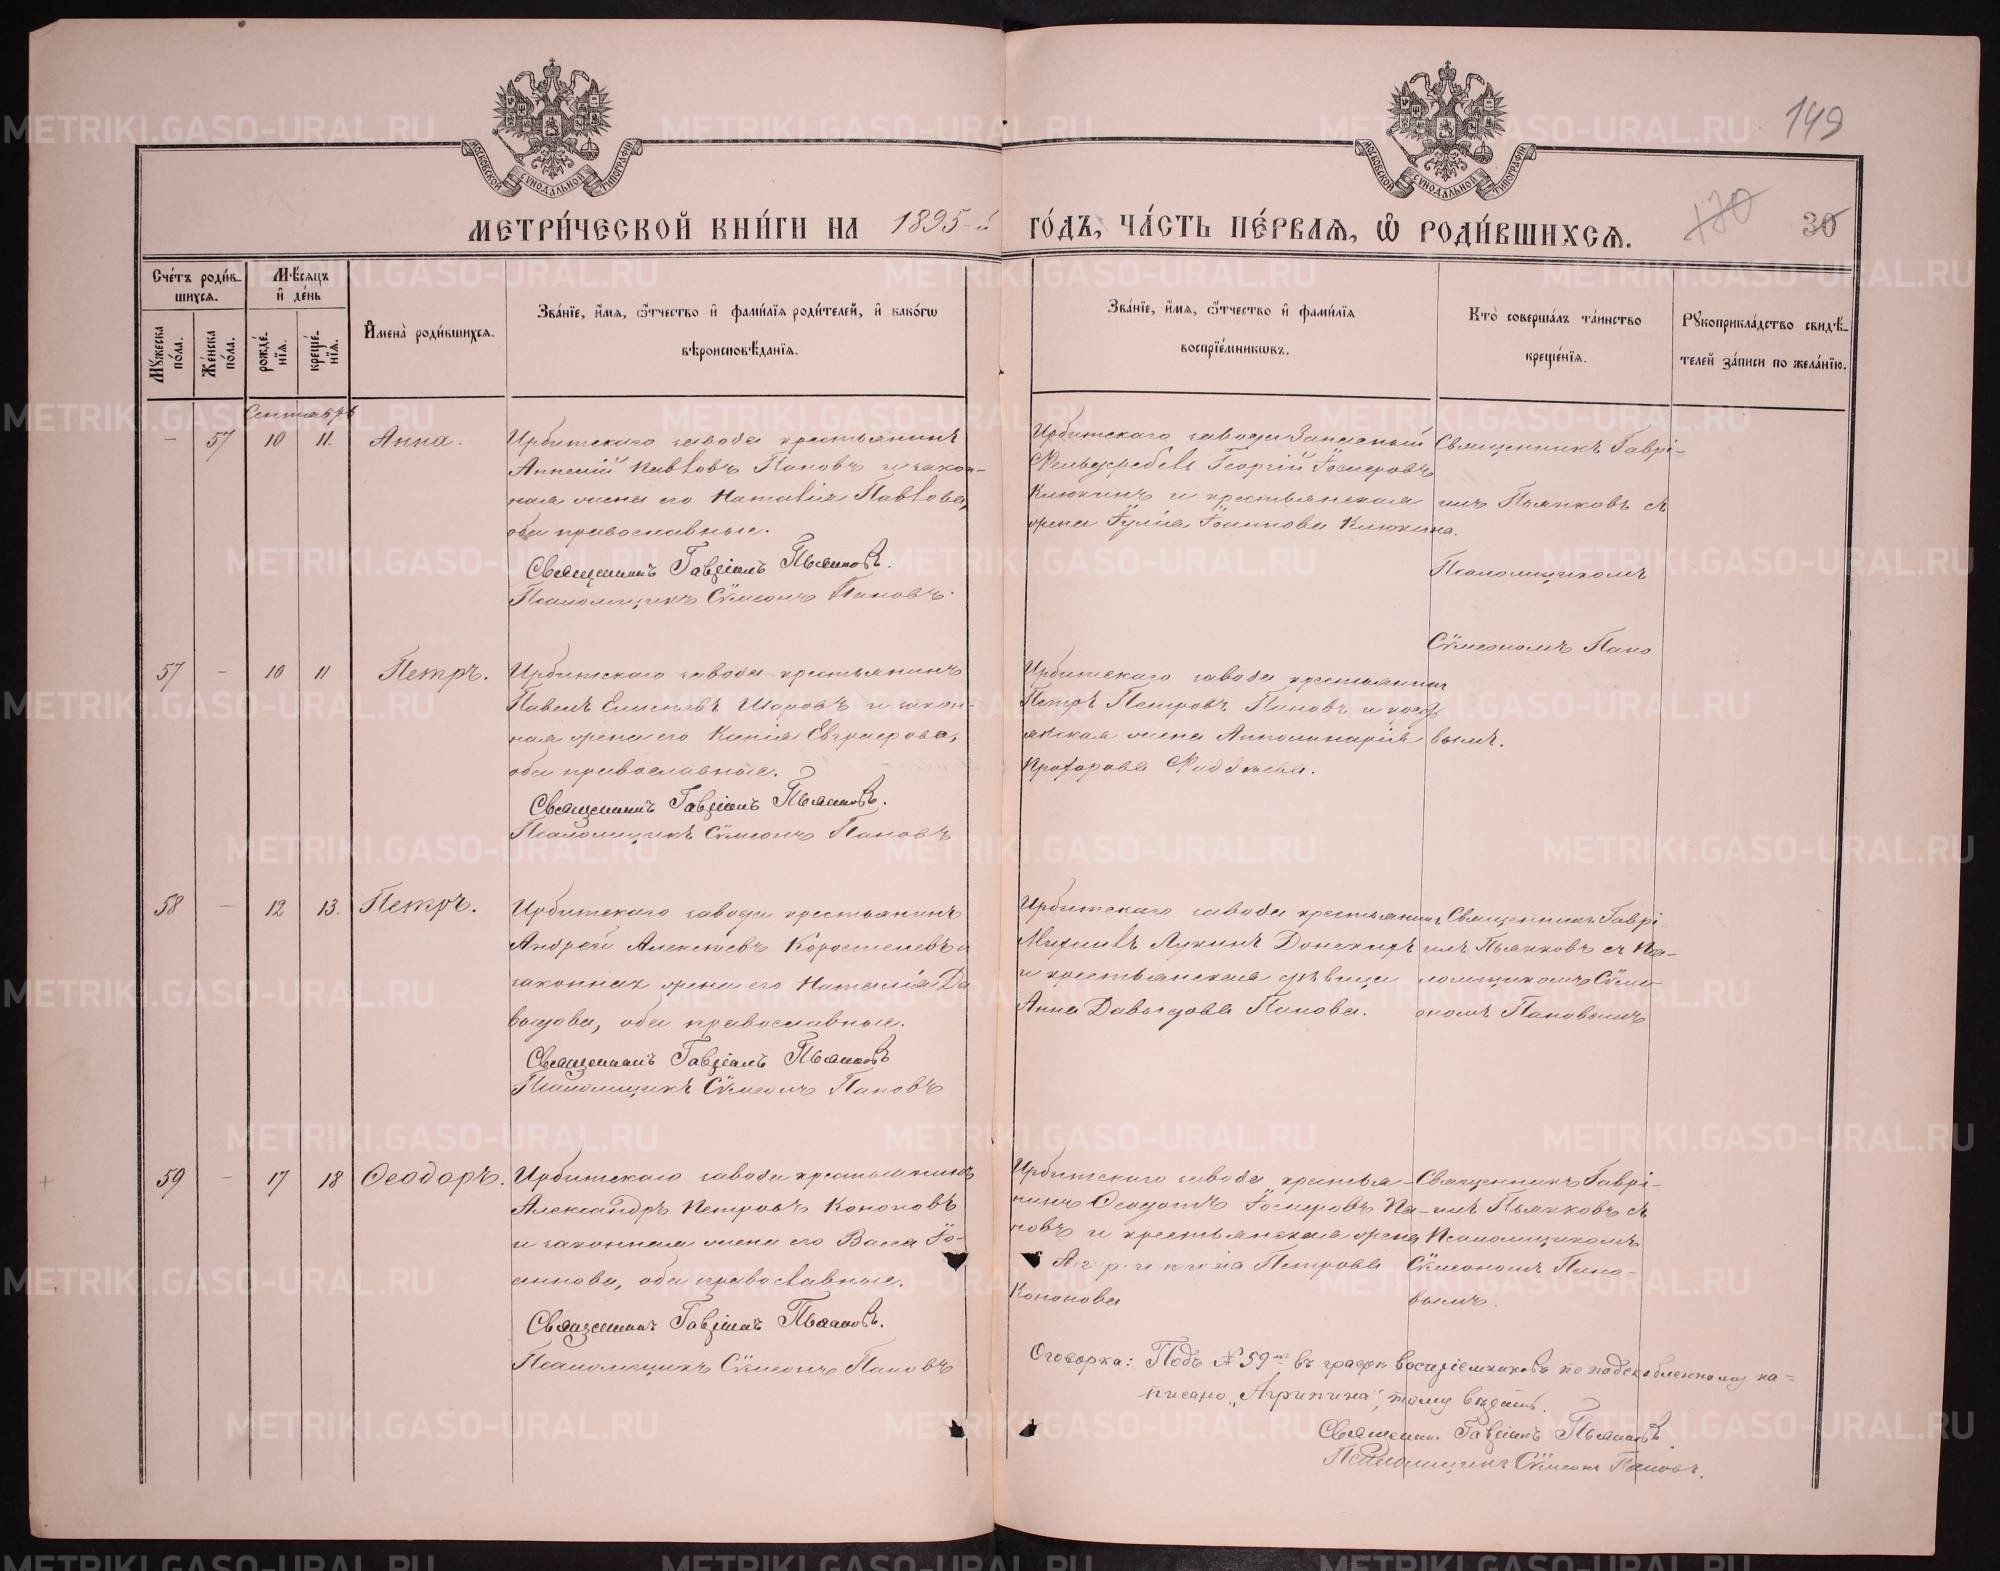 149
МОСКОВСКОЙ СУНОДАЛЬНОЙ ТИПОГРАФІИ
МОСКОВСКОЙ СУНОДАЛЬНОЙ ТИПОГРАФІИ
МЕТРИ́ЧЕСКОЙ КНИ́ГИ НА 1895-й ГО́ДЪ, ЧА́СТЬ ПЕ́РВАѦ, Ѽ РОДИ́ВШИХСѦ.
170 30
Сче́тъ роди́в-
шихсѧ.
Мꙋ́жеска по́ла.
Же́нска по́ла.
Мѣ́сѧцъ
и҆ де́нь
рожде́-
нїѧ.
креще́-
нїѧ.
И҆мена̀ роди́вшихсѧ.
Зва́нїе, и҆́мѧ, ѻ҆́тчество и҆ фами́лїѧ роди́телей, и҆ како́гѡ
вѣроисповѣ́данїѧ.
Зва́нїе, и҆́мѧ, ѻ҆́тчество и҆ фами́лїѧ
воспрїе́мникѡвъ.
Кто̀ соверша́лъ та́инство
креще́нїѧ.
Рꙋкоприкла́дство свидѣ́-
телей за́писи по жела́нїю.
Сентябрь
- 57 10 11. Анна.
Ирбитскаго завода крестьянинъ
Павловъ Пановъ и закон-
ная жена его Наталія Павлова,
оба православные.
Священникъ Гавріилъ Пьянковъ.
Псаломщикъ Сѵмеонъ Пановъ.
Ирбитскаго завода Запасный
Фельдфебель Георгій Іосифовъ
Клюкинъ и крестьянская
жена Іулія Іоаннова Клюкина.
Священникъ Гаврі-
илъ Пьянковъ съ
Псаломщикомъ
Сѵмеономъ Пано
вымъ.
57 - 10 11 Петръ.
Ирбитскаго завода крестьянинъ
Павелъ Елисѣевъ Шаровъ и закон-
ная жена его Ксенія Евграфова,
оба православные.
Священникъ Гавріилъ Пьянковъ.
Псаломщикъ Сѵмеонъ Пановъ
Ирбитскаго завода крестьянинъ
Петръ Петровъ Пановъ и крест
янская жена Апполинарія
Прохорова Фадѣева.
58 - 12 13. Петръ.
Ирбитскаго завода крестьянинъ
Андрей Алексѣевъ Коростелевъ и
законная жена его Наталія Да
выдова, оба православные.
Священникъ Гавріилъ Пьянковъ
Псаломщикъ Сѵмеонъ Пановъ
Ирбитскаго завода крестьянинъ
Михаилъ Лукинъ Донскихъ
и крестьянская дѣвица
Анна Давыдова Панова.
Священникъ Гаврі
илъ Пьянковъ съ Пса-
ломщикомъ Сѵме-
ономъ Пановымъ
59 - 17 18 Ѳеодоръ.
Ирбитскаго завода крестьянинъ
Александръ Петровъ Кононовъ
и законная жена его Васса Іо-
аннова, оба православные.
Священникъ Гавріилъ Пьянковъ.
Псаломщикъ Сѵмеонъ Пановъ
Ирбитскаго завода крестья-
нинъ Ѳеодотъ Іосифовъ Па-
новъ и крестьянская жена
Агрипина Петрова
Кононова
Священникъ Гаврі-
илъ Пьянковъ съ
Псаломщикомъ
Сѵмеономъ Пано-
вымъ.
Оговорка: Подъ № 59мъ въ графѣ воспріемниковъ по подскобленному на-
писано „Агрипина“, тому вѣрить.
Священникъ Гавріилъ Пьянковъ.
Псаломщикъ Сѵмеонъ Пановъ.
METRIKI.GASO-URAL.RU